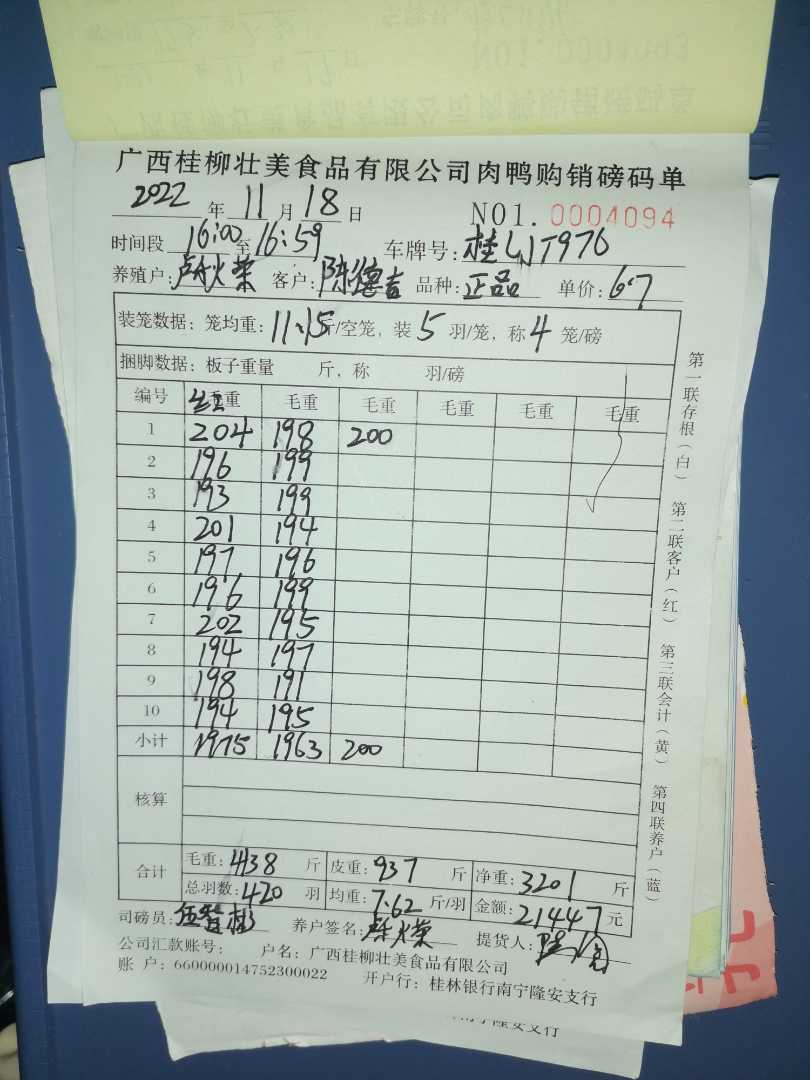 广西桂柳壮美食品有限公司肉鸭购销磅码单
2022 年 11 月 18 日 NO1. 0004094
时间段 16:00 至 16:59 车牌号:桂
养殖户: 客户:陈德吉 品种:正品 单价:6.7
装笼数据:笼均重:11.15斤/空笼,装 5 羽/笼,称 4 笼/磅
捆脚数据:板子重量 斤,称 羽/磅
编号 毛重 毛重 毛重 毛重 毛重 毛重
1 204 198 200
2 196 199
3 193 199
4 201 194
5 197 196
6 196 199
7 202 195
8 194 197
9 198 191
10 194 195
小计 1975 1963 200
核算
合计 毛重:4138 斤 皮重:937 斤 净重:3201 斤
总羽数:420 羽 均重:7.62 斤/羽 金额:21447 元
司磅员: 养户签名: 提货人:
公司汇款账号: 户名:广西桂柳壮美食品有限公司
账 户:660000014752300022 开户行:桂林银行南宁隆安支行
第一联存根(白) 第二联客户(红) 第三联会计(黄) 第四联养户(蓝)